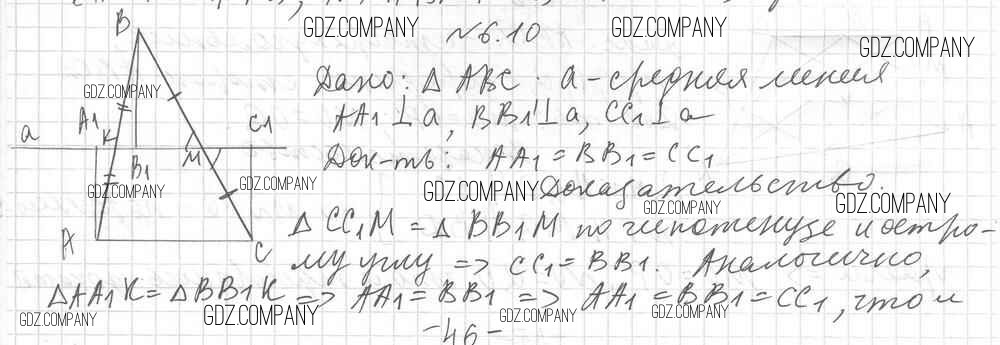 GDZ.COMPANY №6.10 GDZ.COMPANY GDZ.COMPANY
Дано: Δ ABC. a - средняя линия
GDZ.COMPANY
AA1 ⊥ a, BB1 ⊥ a, CC1 ⊥ a
Док-ть: AA1 = BB1 = CC1
GDZ.COMPANY GDZ.COMPANY GDZ.COMPANY Доказательство. GDZ.COMPANY GDZ.COMPANY
Δ CC1M = Δ BB1M по гипотенузе и остро-
му углу => CC1 = BB1. Аналогично,
ΔAA1K = ΔBB1K => AA1 = BB1 => AA1 = BB1 = CC1, что и
GDZ.COMPANY GDZ.COMPANY GDZ.COMPANY GDZ.COMPANY
-46-
B
a A1 K B1 M C1
A C